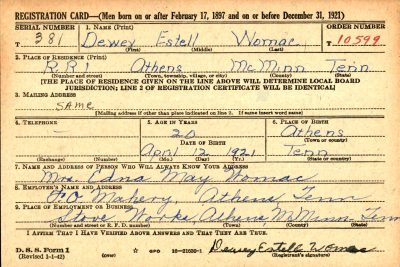 REGISTRATION CARD—(Men born on or after February 17, 1897 and on or before December 31, 1921)
SERIAL NUMBER 1. NAME (Print) ORDER NUMBER
T 381 Dewey Estell Womac T10,599
(First) (Middle) (Last)
2. PLACE OF RESIDENCE (Print)
R.R.1 Athens McMinn Tenn
(Number and street) (Town, township, village, or city) (County) (State)
[THE PLACE OF RESIDENCE GIVEN ON THE LINE ABOVE WILL DETERMINE LOCAL BOARD
JURISDICTION; LINE 2 OF REGISTRATION CERTIFICATE WILL BE IDENTICAL]
3. MAILING ADDRESS
same
[Mailing address if other than place indicated on line 2. If same insert word same]
4. TELEPHONE 5. AGE IN YEARS 6. PLACE OF BIRTH
— 20 Athens
DATE OF BIRTH (Town or county)
April 12 1921 Tenn
(Exchange) (Number) (Mo.) (Day) (Yr.) (State or country)
7. NAME AND ADDRESS OF PERSON WHO WILL ALWAYS KNOW YOUR ADDRESS
Mrs. Edna May Womac
8. EMPLOYER'S NAME AND ADDRESS
Athens Tenn
9. PLACE OF EMPLOYMENT OR BUSINESS
Stove Works Athens McMinn Tenn
(Number and street or R. F. D. number) (Town) (County) (State)
I AFFIRM THAT I HAVE VERIFIED ABOVE ANSWERS AND THAT THEY ARE TRUE.
D. S. S. Form 1
(Revised 1-1-42) (over) GPO 16—21630-1 Dewey Estell Womac
(Registrant's signature)